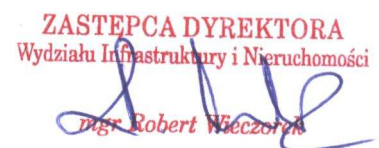 ZASTĘPCA DYREKTORA
Wydziału Infrastruktury i Nieruchomości
mgr Robert Wieczorek